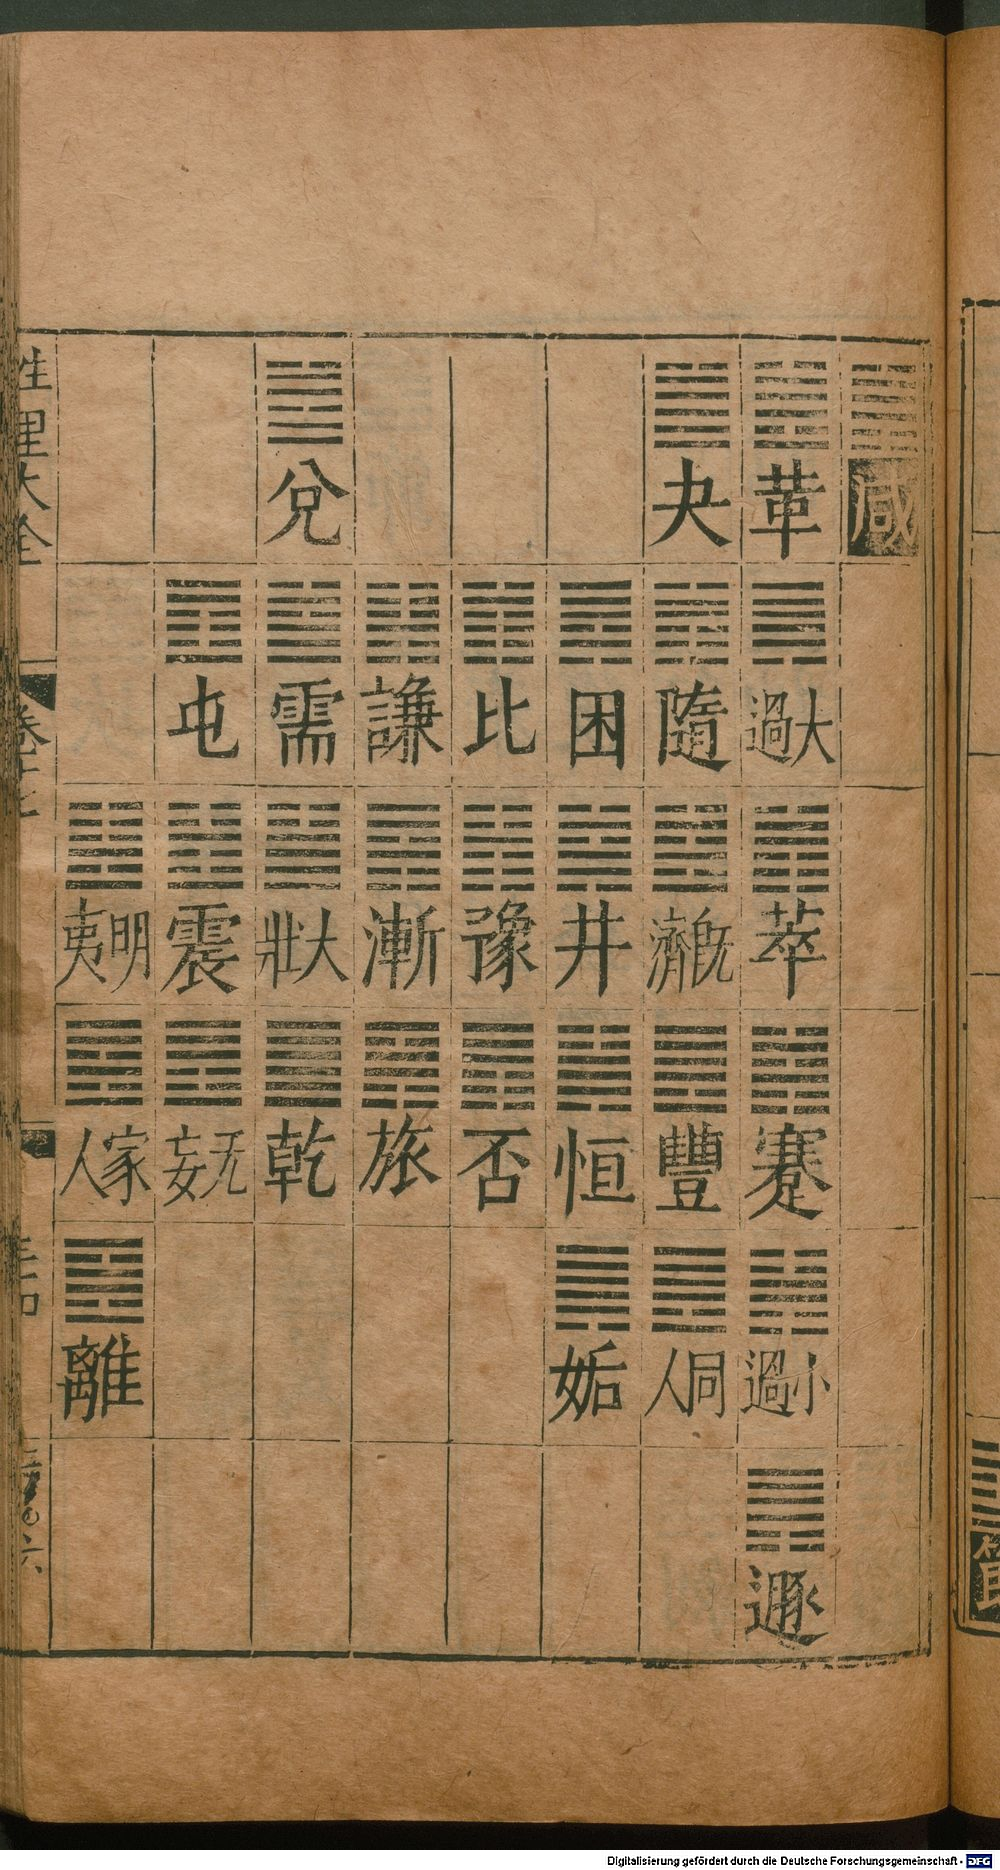 咸
革
大過
萃
蹇
小過
遯
夬
隨
既濟
豐
同人
困
井
恒
姤
比
豫
否
謙
漸
旅
兌
需
大壯
乾
屯
震
无妄
明夷
家人
離
性理大全
Digitalisierung gefördert durch die Deutsche Forschungsgemeinschaft - DFG